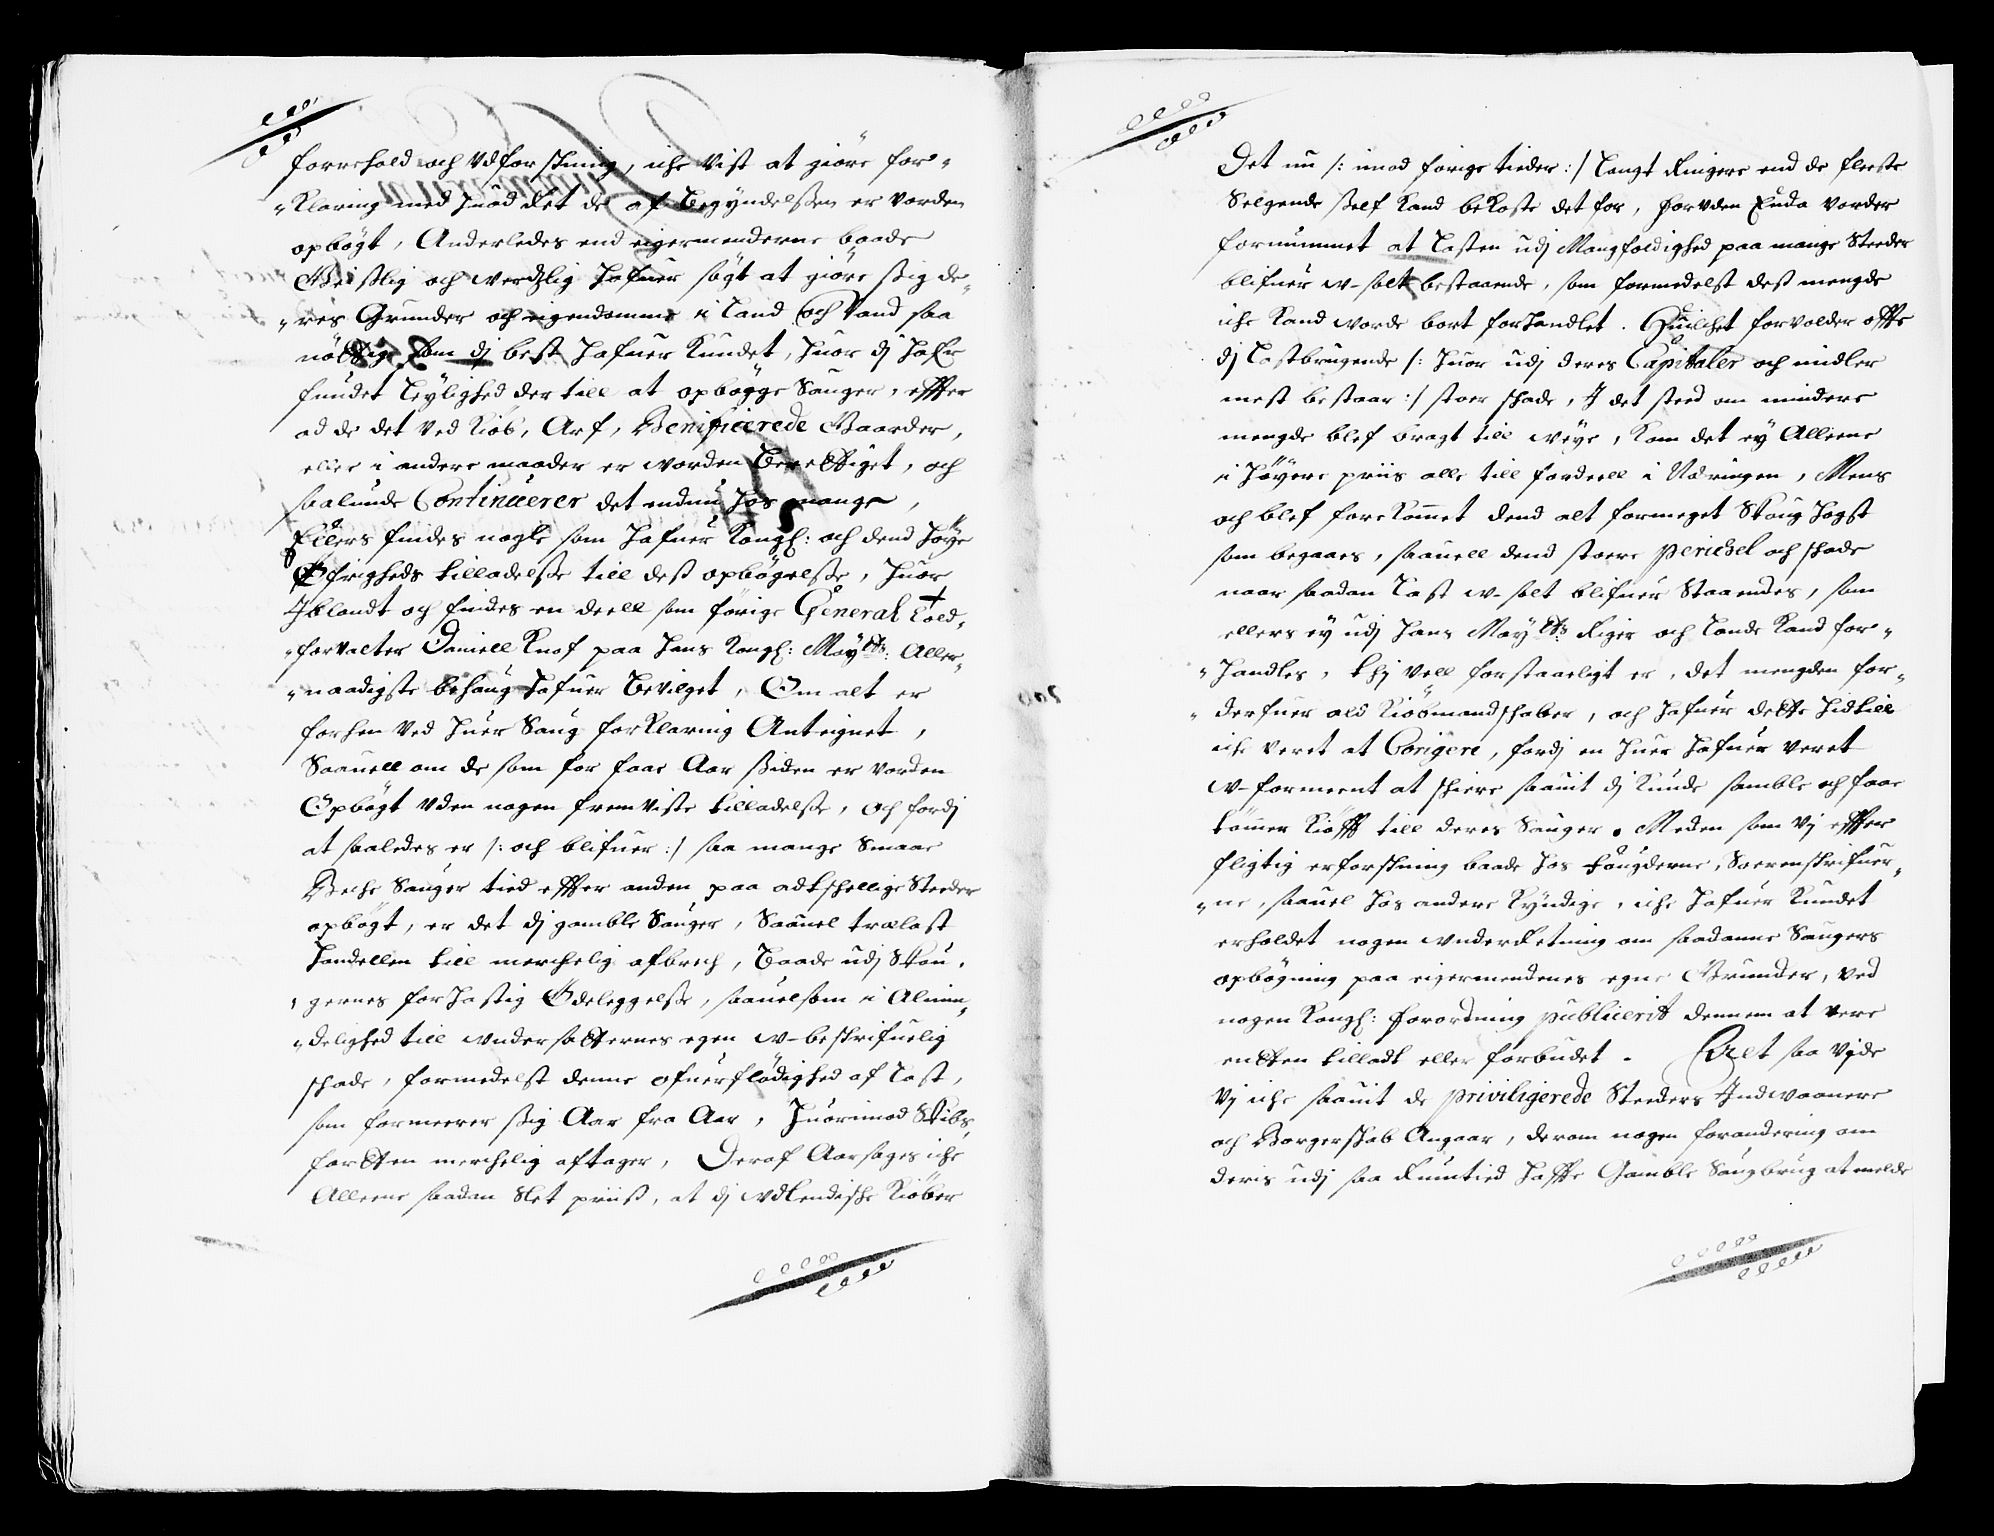 forrehold och Udforskning, iche vist at giöre for-
-klaring med huad Ret de af begyndelssen er vorden
opbögt, Anderledes end eigermenderne baade
Geistlig och werdzlig hafuer sögt at giöre sig de-
-res Grunder och eigendomme i Land och Vand saa
nöttig som dj best hafuer kundet, huor dj hafr
fundet leylighed der till at opbögge Sauger, effter
ad de det ved kiöb, Arf, Benificerede Gaarder,
eller i andere maader er worden berettiget, och
saalunde Continuerer det endnu hos mange,
Ellers findes nogle som hafuer Kongl: och dend höye
Öfrigheds tilladelsse till dess opbögelsse, huor
Jblandt och findes en deell som förige General told-
-forvalter Daniell Knof paa hans Kongl: Maytts: Aller-
-naadigste behaug hafuer bevilget, Om alt er
forhen ved huer Saug forklaring Anteignet,
Saauell om de som for faae Aar ssiden er vorden
Opbögt uden nogen fremviste tilladelsse, och fordj
at saaledes er /: och blifuer :/ saa mange Smaae
Beche Sauger tied effter anden paa adtschellige Steeder
opbögt, er det dj gamble Sauger, Saauel trælast
handellen till merchelig afbrech, baade udj Skou-
-gernes forhastig Ödeleggelsse, saauelsom i Almin-
-delighed till undersatternes egen u-beskrifuelig
schade, formedelst denne ofuerflödighed af Last,
som formeerer ssig Aar fra Aar, huorimod Skibs
farten merchelig aftager, Deraf Aarsages iche
Alleene saadan slet priiss, at dj udlendische kiöber
Det nu /: imod förige tieder :/ langt Ringere end de fleeste
Selgende sself kand bekoste det for, foruden Enda vorder
fornummet at Lasten udj Mangfoldighed paa mange Steeder
blifuer u-solt bestaaende, som formedelst dess mengde
iche kand worde bort forhandlet. Huilchet forvolder offte
dj Lastbrugende /: huor udj deres Capitaler och midler
mest bestaar :/ stoer schade, J det sted om mindere
mengde blef bragt till weye, kom det ey Alleene
i höyere priis alle till fordeell i Næringen, Mens
och blef forekommet dend alt formeget Skoug hogst
som begaaes, saauell dend stoere perichel och schade
naar saadan Last u-solt blifuer Staaendes, som
ellers ey udj hans Maytts Riger och Lande kand for-
-handles, thj vell forstaaeligt er, det mengden for-
-derfuer ald Kiöbmandschaber, och hafuer dette hidtill
iche veret at Corigere, fordj en huer hafuer veret
u-formeent at schiere saauit dj kunde samble och faae
tömmer kiöfft till deres Sauger. Meden som vj effter
fligtig erforschning baade hos fougderne, Sorenskrifuer-
-ne, saauel hos andere kyndige, iche hafuer kundet
erholdet nogen underRetning om saadanne Saugers
opbögning paa eigermendenes egne Grunder, ved
nogen Kongl: forordning publicerit dennem at vere
entten tilladt eller forbudet. Ey saa vjde
vj iche saauit de priviligerede Steeders Jndwaanere
och Borgerskab Angaar, derom nogen forandering om
deris udj saa Rumtied haffte Gamble Saugbrug at melde